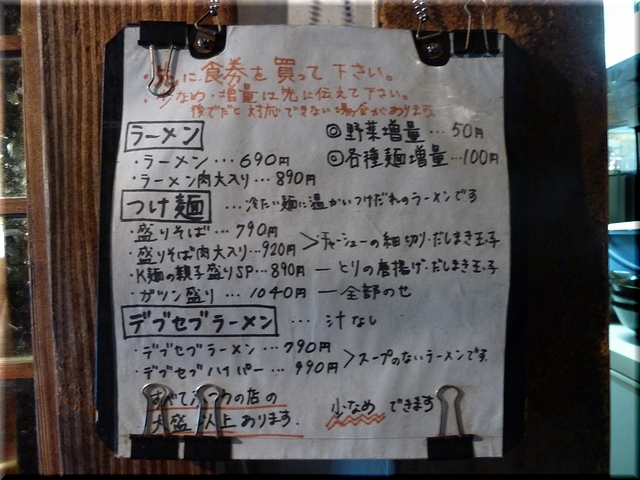 ・先に食券を買って下さい。
・少なめ・増量は先に伝えて下さい。
後でだと対応できない場合があります
ラーメン
◎野菜増量…50円
◎各種麺増量…100円
・ラーメン…690円
・ラーメン肉大入り…890円
つけ麺 …冷たい麺に温かいつけだれのラーメンです
・盛りそば…790円
・盛りそば肉大入り…920円 >チャーシューの細切り・だしまき玉子
・K麺の親子盛りSP…890円 ―とりの唐揚げ・だしまき玉子
・ガツン盛り…1040円 ―全部のせ
デブセブラーメン … 汁なし
・デブセブラーメン…790円
・デブセブハイパー…990円 >スープのないラーメンです
すべてふつうの店の
大盛以上あります。
少なめできます